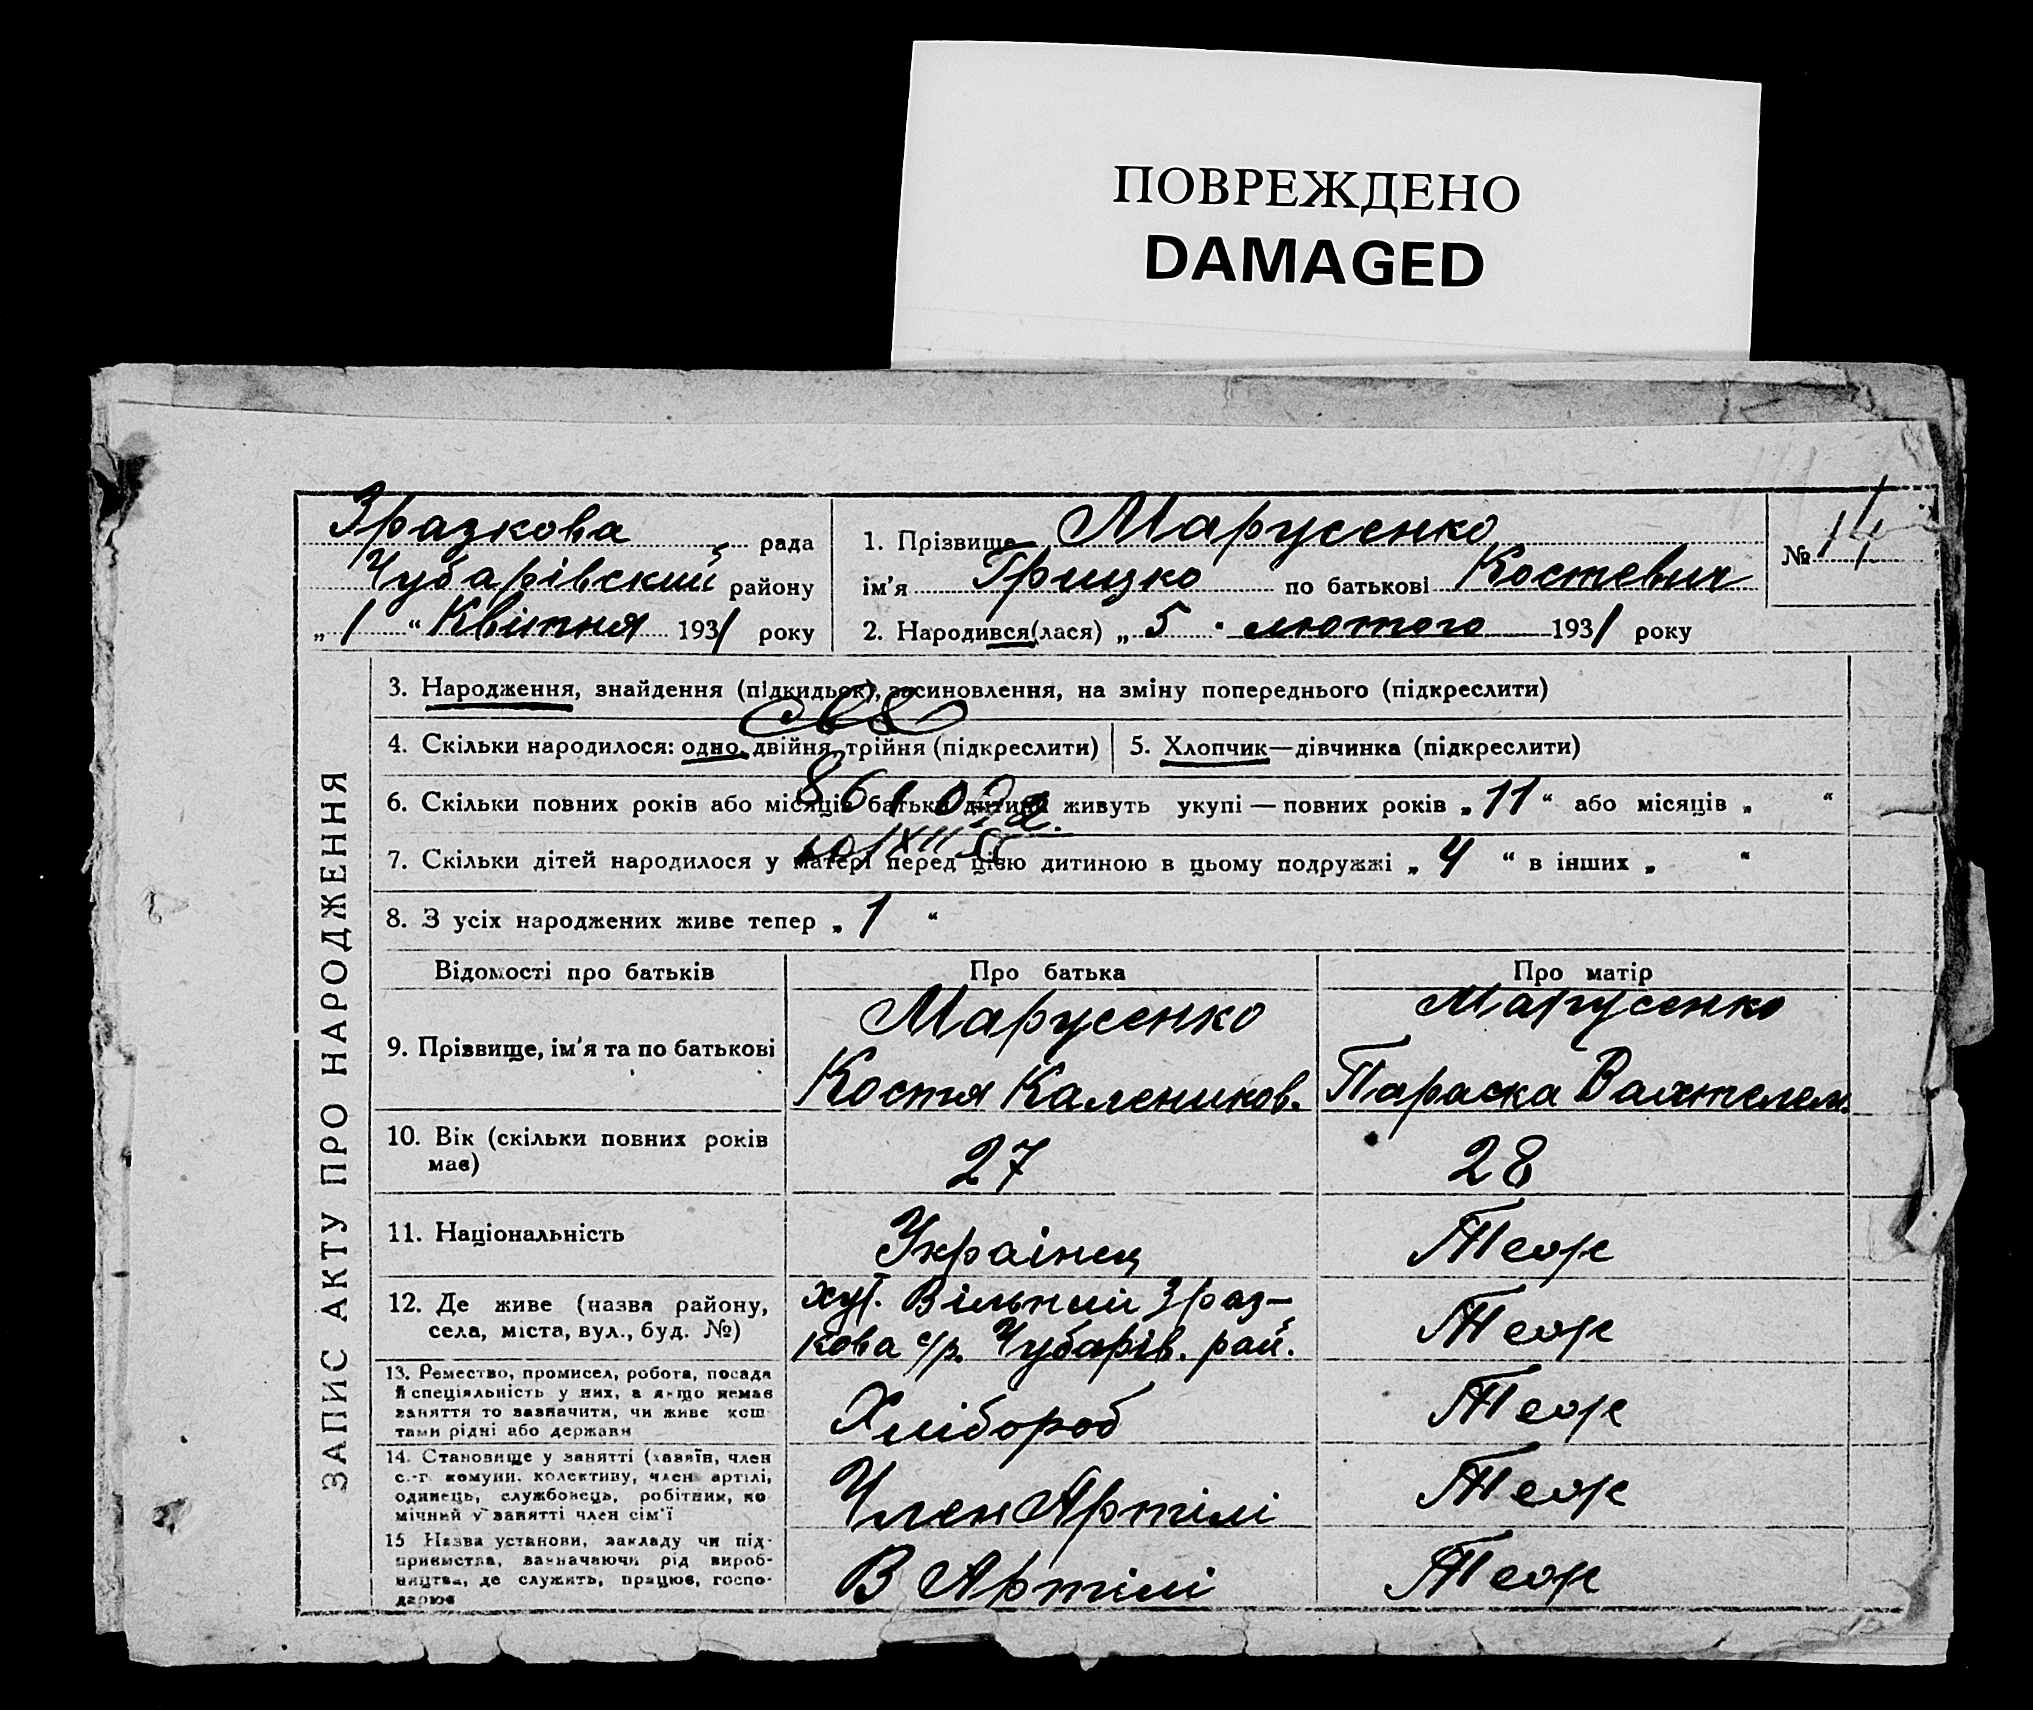 ПОВРЕЖДЕНО
DAMAGED
Зразкова рада
Чубарівський району
„ 1 “ Квітня 1931 року
1. Прізвище Марусенко
ім’я Грицко по батькові Костевич
№ 14
2. Народився(лася) „ 5 “ лютого 1931 року
ЗАПИС АКТУ ПРО НАРОДЖЕННЯ
3. Народження, знайдення (підкидьок), засиновлення, на зміну попереднього (підкреслити)
4. Скільки народилося: одно, двійня, трійня (підкреслити)
5. Хлопчик—дівчинка (підкреслити)
6. Скільки повних років або місяців батьки дитини живуть укупі — повних років „ 11 “ або місяців „ “
7. Скільки дітей народилося у матері перед цією дитиною в цьому подружжі „ 4 “ в інших „ “
8. З усіх народжених живе тепер „ 1 “
Відомості про батьків
Про батька
Про матір
9. Прізвище, ім’я та по батькові
Марусенко
Костя Калеников.
Марусенко
Параска
10. Вік (скільки повних років
має)
27
28
11. Національність
Украінец
Теж
12. Де живе (назва району,
села, міста, вул., буд. №)
хут. Вільний Зраз-
кова с/р. Чубарів. рай.
Теж
13. Ремество, промисел, робота, посада
й спеціяльність у них, а якщо немає
заняття то зазначити, чи живе кош
тами рідні або держави
Хлібороб
Теж
14. Становище у занятті (хазяїн, член
с.-г. комуни, колективу, член артілі,
одинець, службовець, робітник, по
мічний у занятті член сім’ї
Член Артілі
Теж
15 Назва установи, закладу чи під-
приємства, зазначаючи рід вироб-
ництва, де служить, працює, госпо-
дарює
В Артілі
Теж